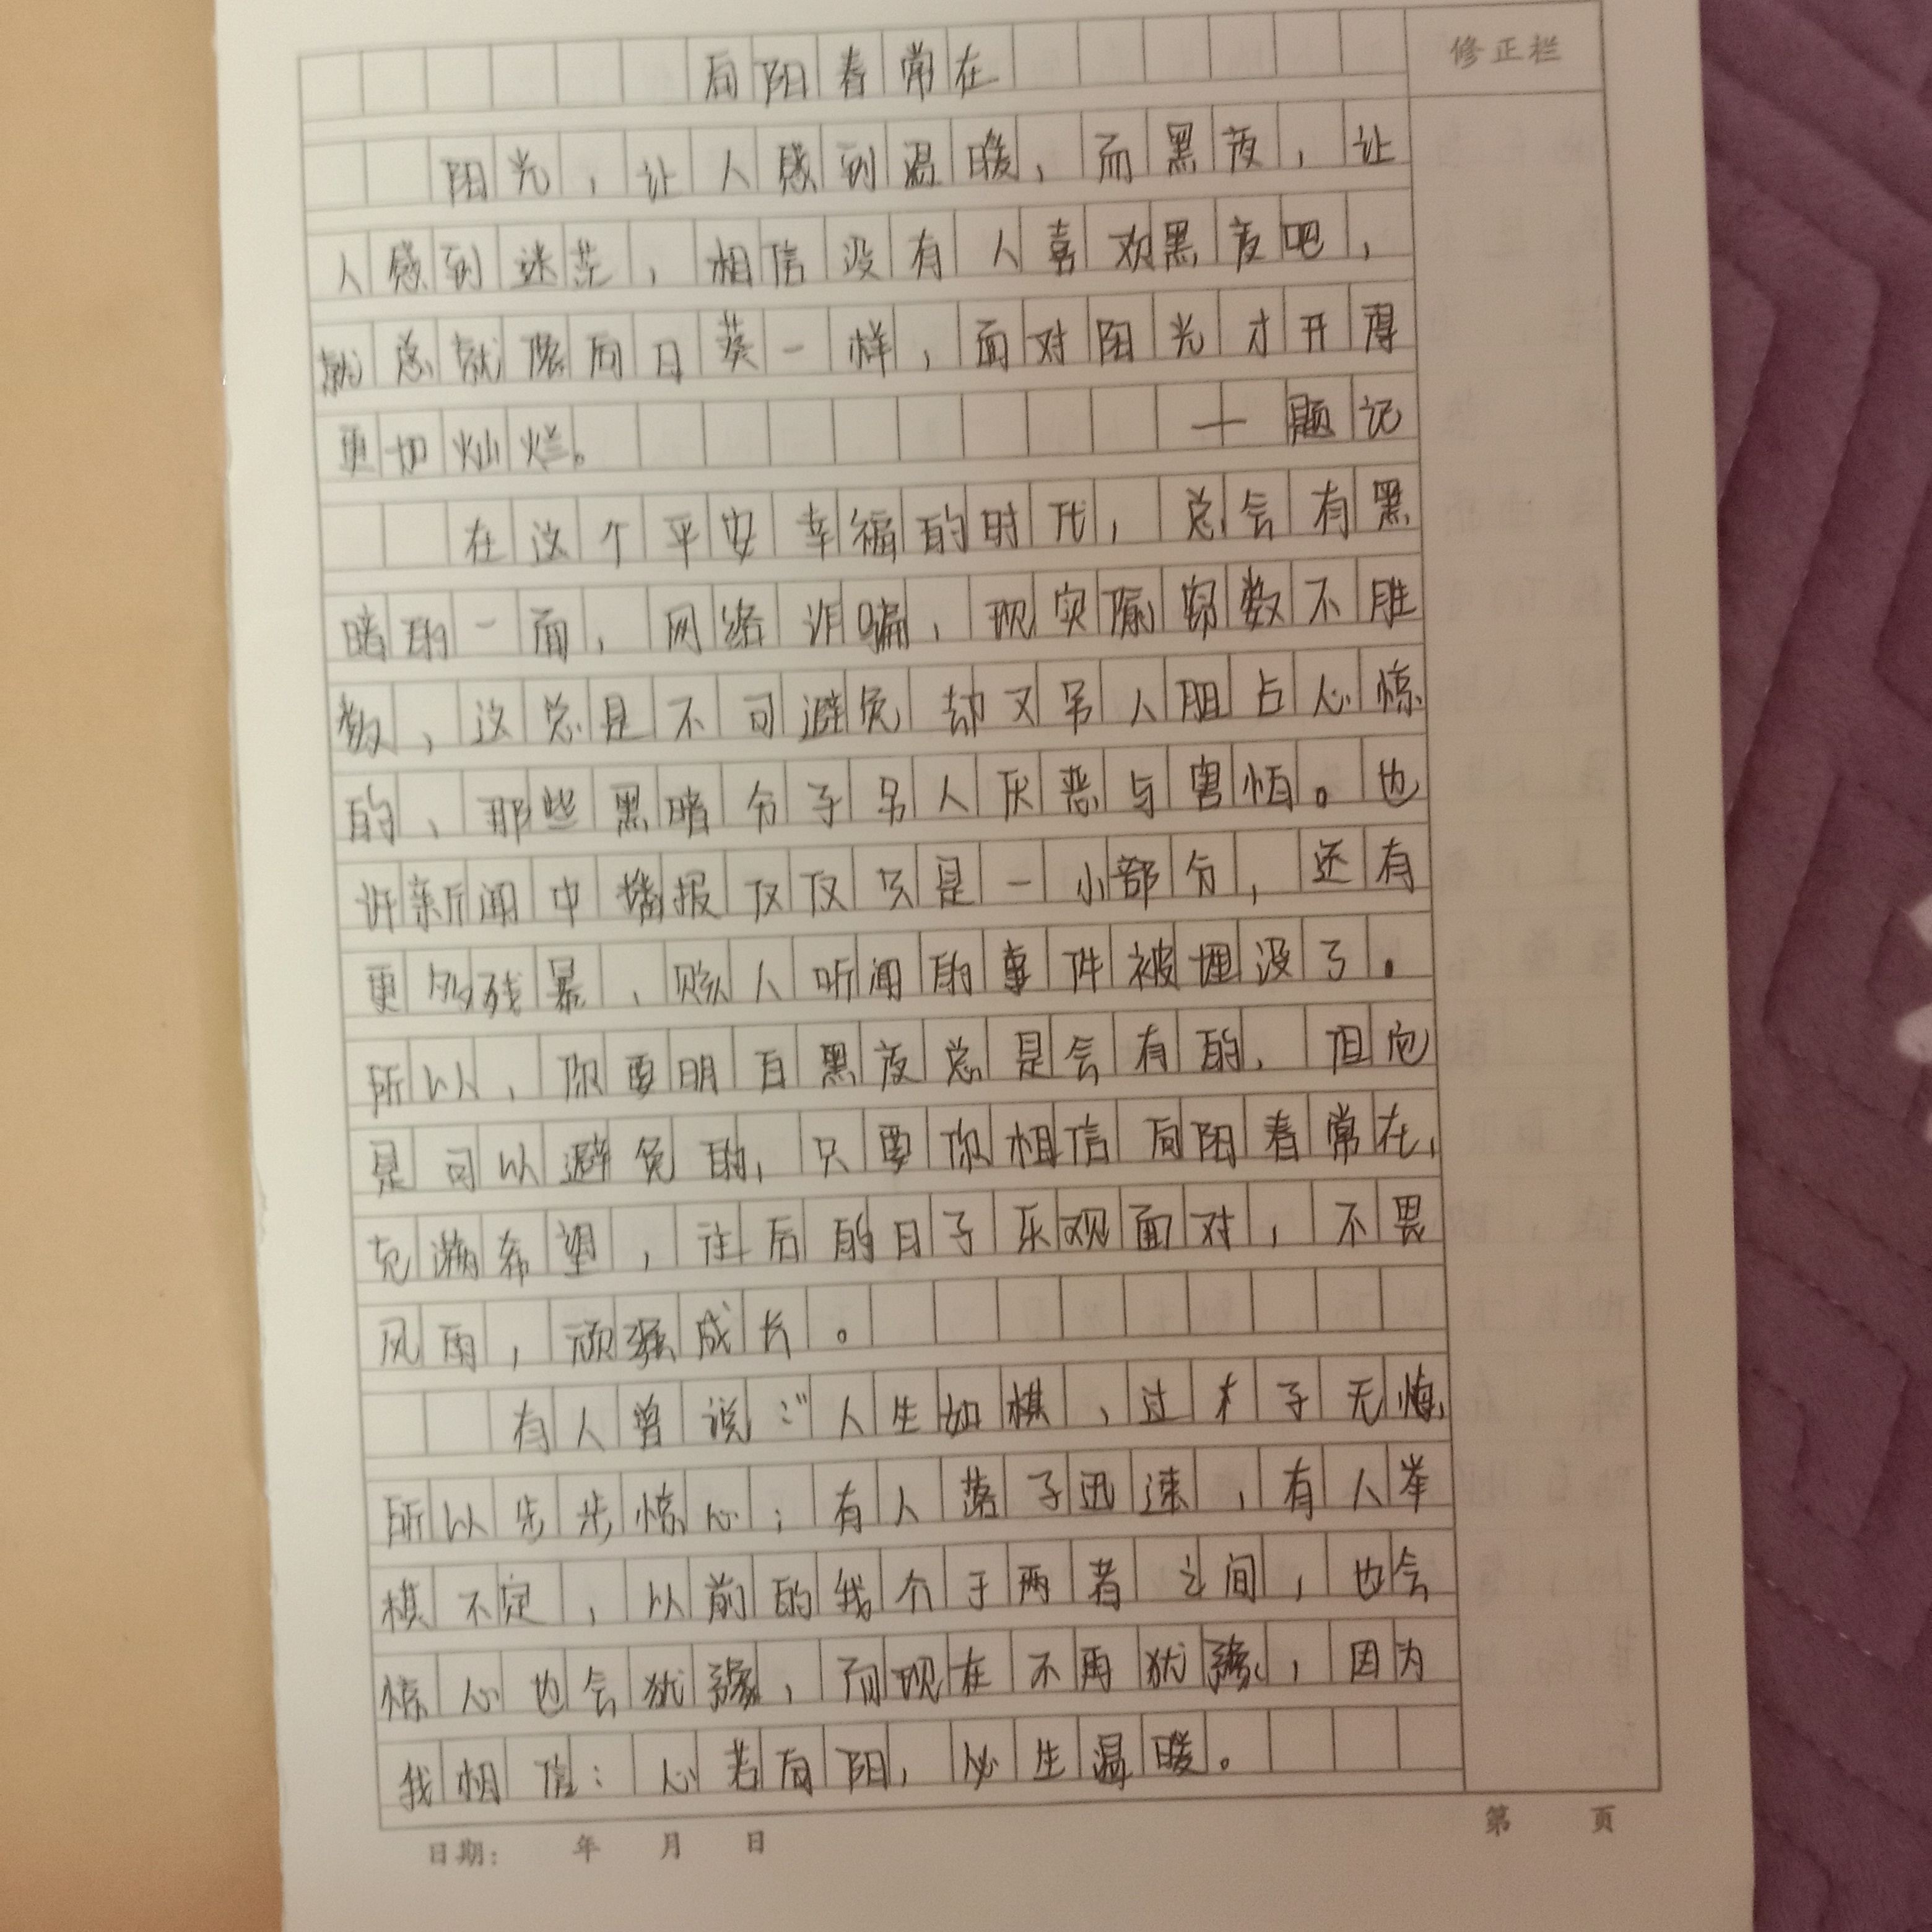 向阳春常在
修正栏
阳光，让人感到温暖，而黑夜，让
人感到迷茫，相信没有人喜欢黑夜吧，
就总就像向日葵一样，面对阳光才开得
更加灿烂。——题记
在这个平安幸福的时代，总会有黑
暗的一面，网络诈骗，现实隐患数不胜
数，这总是不可避免却又另人胆占心惊
的、那些黑暗分子另人厌恶与害怕。也
许新闻中播报仅仅只是一小部分，还有
更多残暴、骇人听闻的事件被埋没了。
所以，你要明白黑夜总是会有的，但它
是可以避免的，只要你相信向阳春常在，
充满希望，往后的日子乐观面对，不畏
风雨，顽强成长。
有人曾说：“人生如棋，过才子无悔，
所以步步惊心；有人落子迅速，有人举
棋不定，以前的我介于两者之间，也会
惊心也会犹豫，而现在不再犹豫，因为
我相信：心若向阳，必生温暖。
日期： 年 月 日
第 页